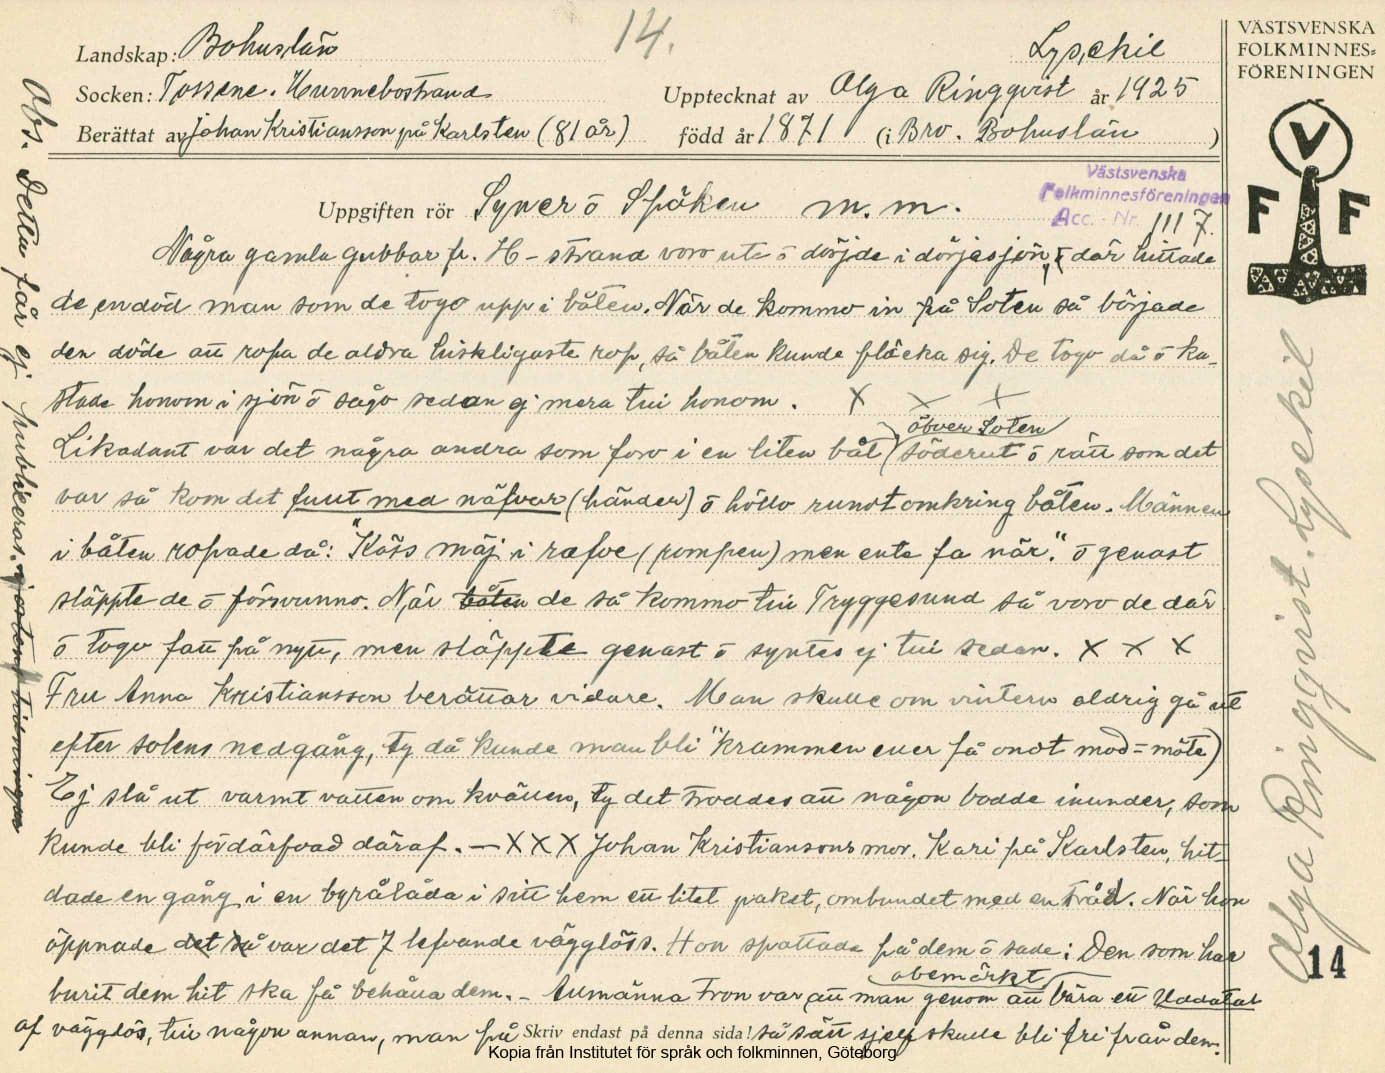 14.
Landskap: Bohuslän
Lysekil
Socken: Tossene. Hunnebostrand
Upptecknat av Olga Ringqvist år 1925
Berättat av Johan Kristiansson på Karlsten (81 år)
född år 1871 (i Bro. Bohuslän)
VÄSTSVENSKA
FOLKMINNES-
FÖRENINGEN
V
F F
Västsvenska
Folkminnesföreningen
Acc. - Nr. 1117.
Uppgiften rör Syner ō Spöken m. m.
Några gamla gubbar fr. H-strand voro ute ō dörjde i dörjesjön, ō där hittade
de en död man som de togo upp i båten. När de kommo in på Soten så började
den döde att ropa de aldra hiskligaste rop, så båten kunde fläcka sig. De togo då ō ka-
stade honom i sjön ō sågo sedan ej mera till honom. X X X
Likadant var det några andra som foro i en liten båt (söderut ō rätt som det
öbver Soten
var så kom det fullt med näfvar (händer) ō höllo rundt omkring båten. Männen
i båten ropade då: "Köss mäj i ræfve (rumpen) men ente fa när". ō genast
släppte de ō försvunno. När båten de så kommo till Tryggesund så voro de där
ō togo fatt på nytt, men släppte genast ō syntes ej till sedan. X X X
Fru Anna Kristiansson berättar vidare. Man skulle om vintern aldrig gå ut
efter solens nedgång, ty då kunde man bli "krammen eller få ondt mod = möte)
Ej slå ut varmt vatten om kvällen, ty det troddes att någon bodde inunder, som
kunde bli fördärfvad däraf. — X X X Johan Kristiansons mor. Kari på Karlsten, hit-
dade en gång i en byrålåda i sitt hem ett litet paket, ombundet med en tråd. När hon
öppnade det så var det 7 lefvande vägglöss. Hon spottade på dem ō sade: Den som har
burit dem hit ska få behålla dem. - Allmänna tron var att man genom att bära ett Uddatal
obemärkt
af vägglöss, till någon annan, man på Skriv endast på denna sida! så sätt sjelf skulle bli fri från dem.
Obs. Detta får ej publiceras.
Olga Ringqvist. Lysekil
14
Kopia från Institutet för språk och folkminnen, Göteborg